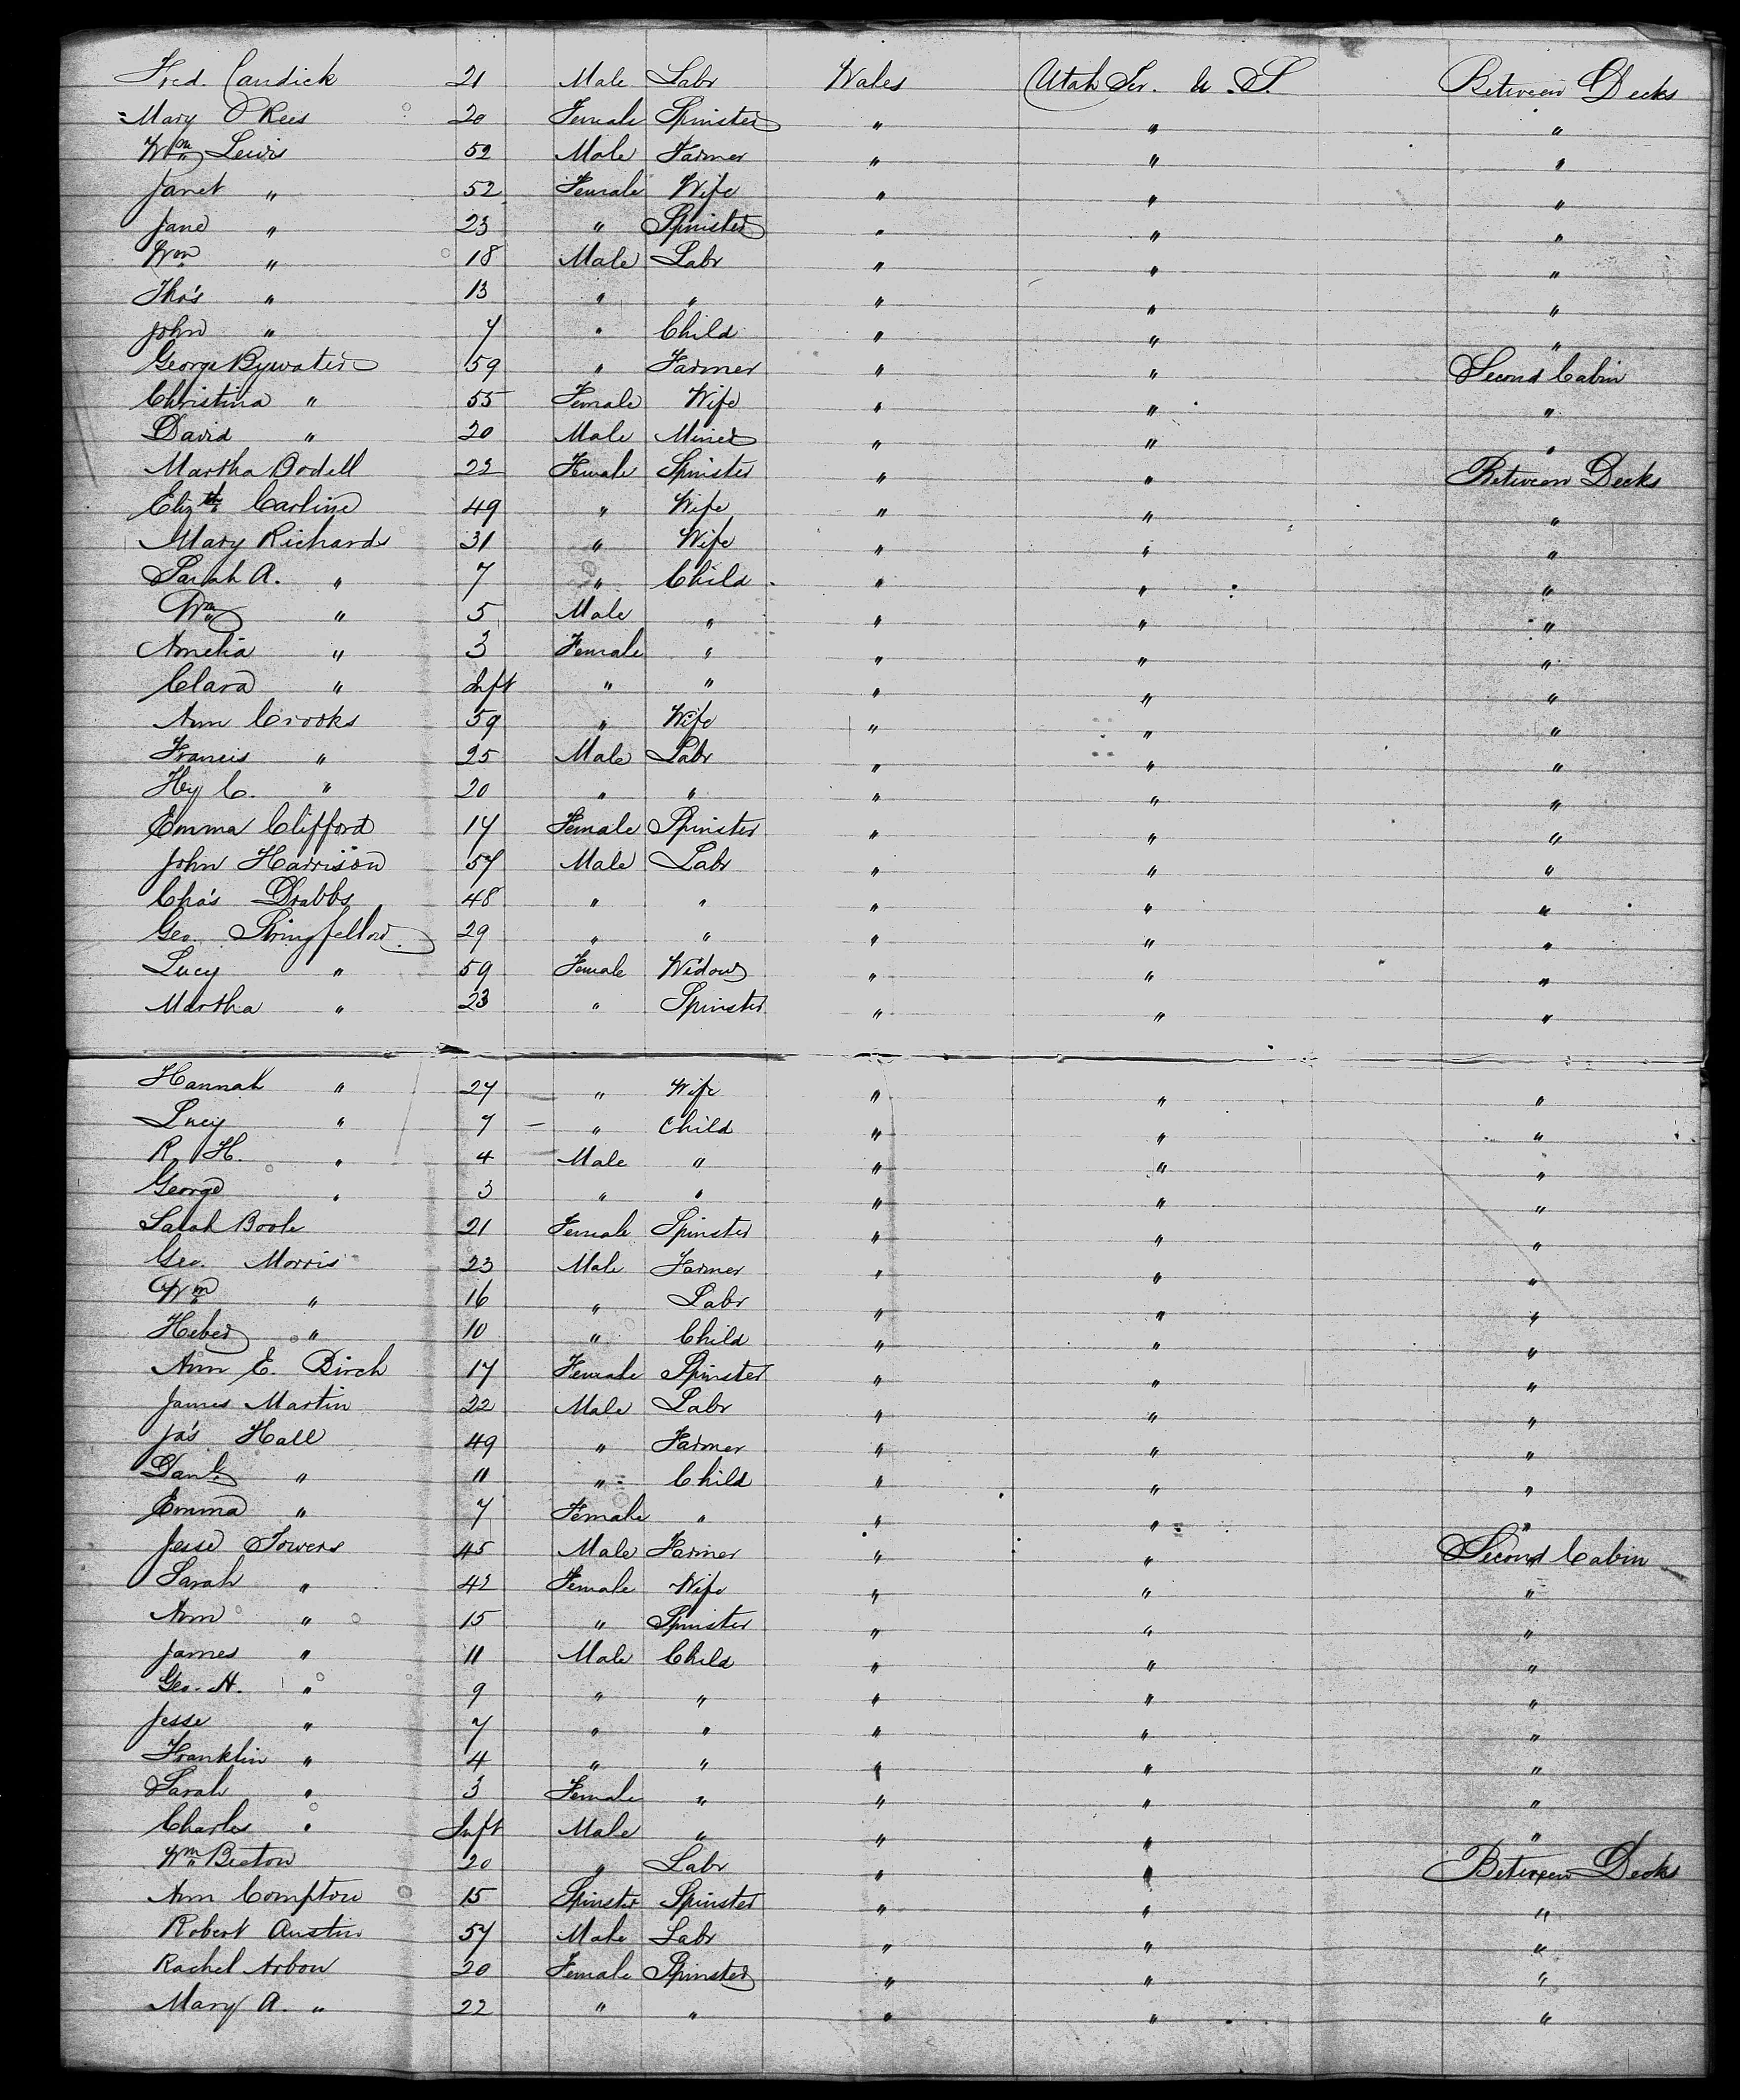 Fred. Candick 21 Male Labr Wales Utah Ter. U.S. Between Decks
Mary P Rees 20 Female Spinster " " "
Wm Lewis 52 Male Farmer " " "
Janet " 52 Female Wife " " "
Jane " 23 " Spinster " " "
Wm " 18 Male Labr " " "
Tho's " 13 " " " " "
John " 7 " Child " " "
George Bywater 59 " Farmer " " Second Cabin
Christina " 55 Female Wife " " "
David " 20 Male Miner " " "
Martha Bodell 22 Female Spinster " " Between Decks
Elizth Carline 49 " Wife " " "
Mary Richards 31 " Wife " " "
Sarah A. " 7 " Child " " "
Wm " 5 Male " " " "
Amelia " 3 Female " " " "
Clara " Inft " " " " "
Ann Crooks 59 " Wife " " "
Francis " 25 Male Labr " " "
Hy C. " 20 " " " " "
Emma Clifford 17 Female Spinster " " "
John Harrison 57 Male Labr " " "
Cha's Drabbs 48 " " " " "
Geo. Stringfellow 29 " " " " "
Lucy " 59 Female Widow " " "
Martha " 23 " Spinster " " "
Hannah " 27 " Wife " " "
Lucy " 7 " Child " " "
R. H. " 4 Male " " " "
George " 3 " " " " "
Sarah Boole 21 Female Spinster " " "
Geo. Morris 23 Male Farmer " " "
Wm " 16 " Labr " " "
Heber " 10 " Child " " "
Ann E. Birch 17 Female Spinster " " "
James Martin 22 Male Labr " " "
Ja's Hall 49 " Farmer " " "
Danl " 11 " Child " " "
Emma " 7 Female " " " "
Jesse Towers 45 Male Farmer " " Second Cabin
Sarah " 42 Female Wife " " "
Ann " 15 " Spinster " " "
James " 11 Male Child " " "
Geo. H. " 9 " " " " "
Jesse " 7 " " " " "
Franklin " 4 " " " " "
Sarah " 3 Female " " " "
Charles " Inft Male " " " "
Wm Beeton 20 " Labr " " Between Decks
Ann Compton 15 Spinster Spinster " " "
Robert Austin 57 Male Labr " " "
Rachel Arbon 20 Female Spinster " " "
Mary A. " 22 " " " " "